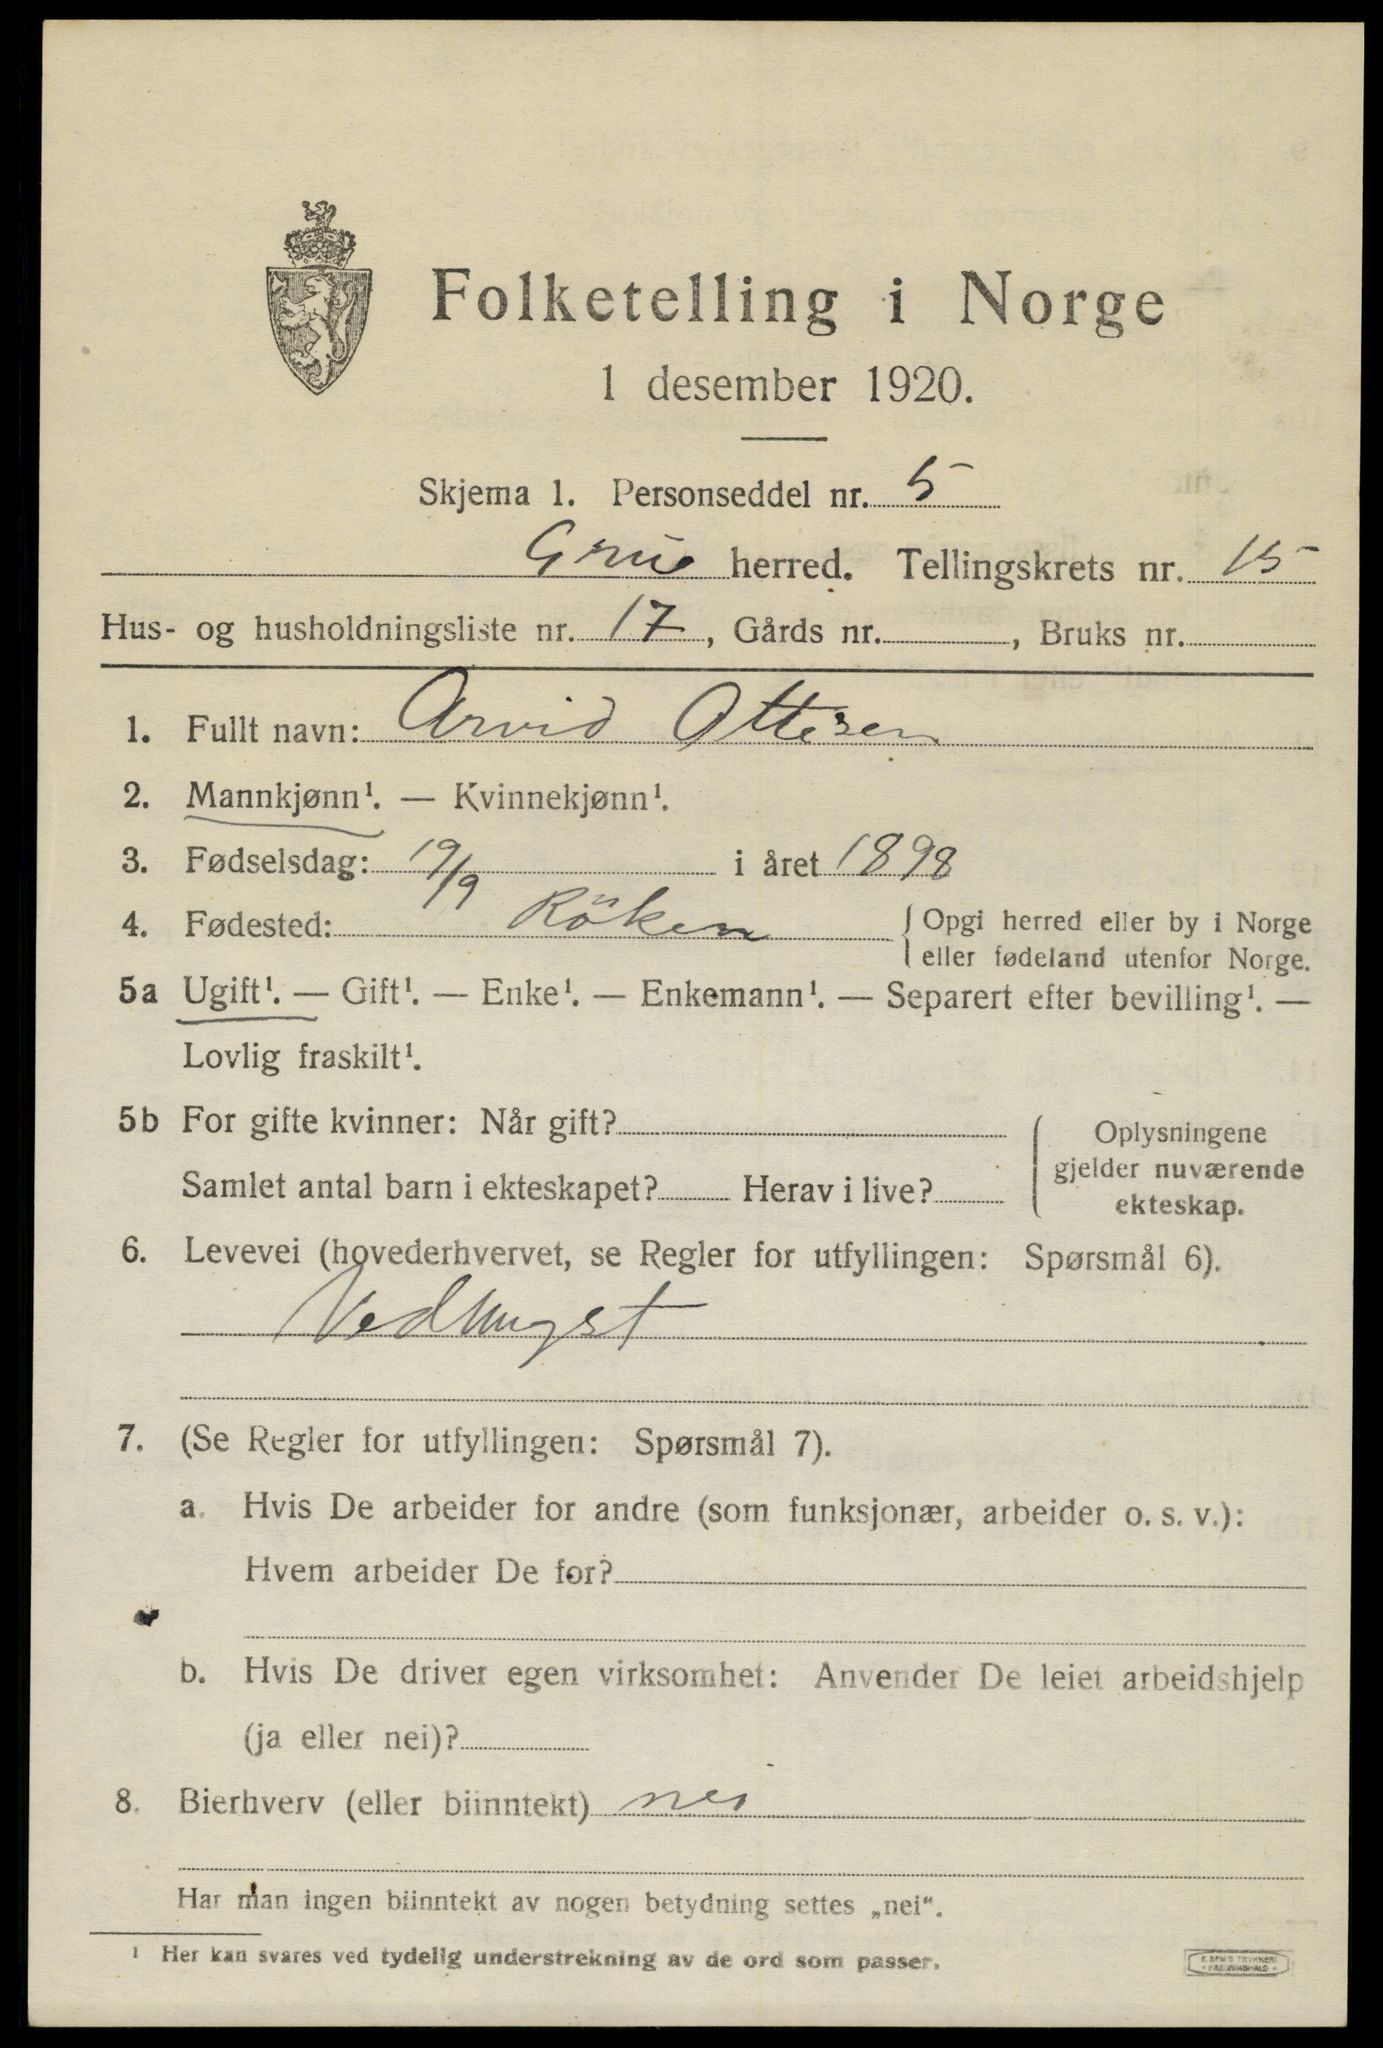 Folketelling i Norge
1 desember 1920.
Skjema 1. Personseddel nr. 5
Grue herred. Tellingskrets nr. 15
Hus- og husholdningsliste nr. 17, Gårds nr. , Bruks nr.
1. Fullt navn: Arvid Ottesen
2. Mannkjønn¹. — Kvinnekjønn¹.
3. Fødselsdag: 19/9 i året 1898
4. Fødested: Röken { Opgi herred eller by i Norge
eller fødeland utenfor Norge.
5a Ugift¹. — Gift¹. — Enke¹. — Enkemann¹. — Separert efter bevilling¹. —
Lovlig fraskilt¹.
5b For gifte kvinner: Når gift?
Samlet antal barn i ekteskapet? Herav i live?
Oplysningene
gjelder nuværende
ekteskap.
6. Levevei (hovederhvervet, se Regler for utfyllingen: Spørsmål 6).
7. (Se Regler for utfyllingen: Spørsmål 7).
a. Hvis De arbeider for andre (som funksjonær, arbeider o. s. v.):
Hvem arbeider De for?
b. Hvis De driver egen virksomhet: Anvender De leiet arbeidshjelp
(ja eller nei)?
8. Bierhverv (eller biinntekt) nei
Har man ingen biinntekt av nogen betydning settes „nei“.
¹ Her kan svares ved tydelig understrekning av de ord som passer.